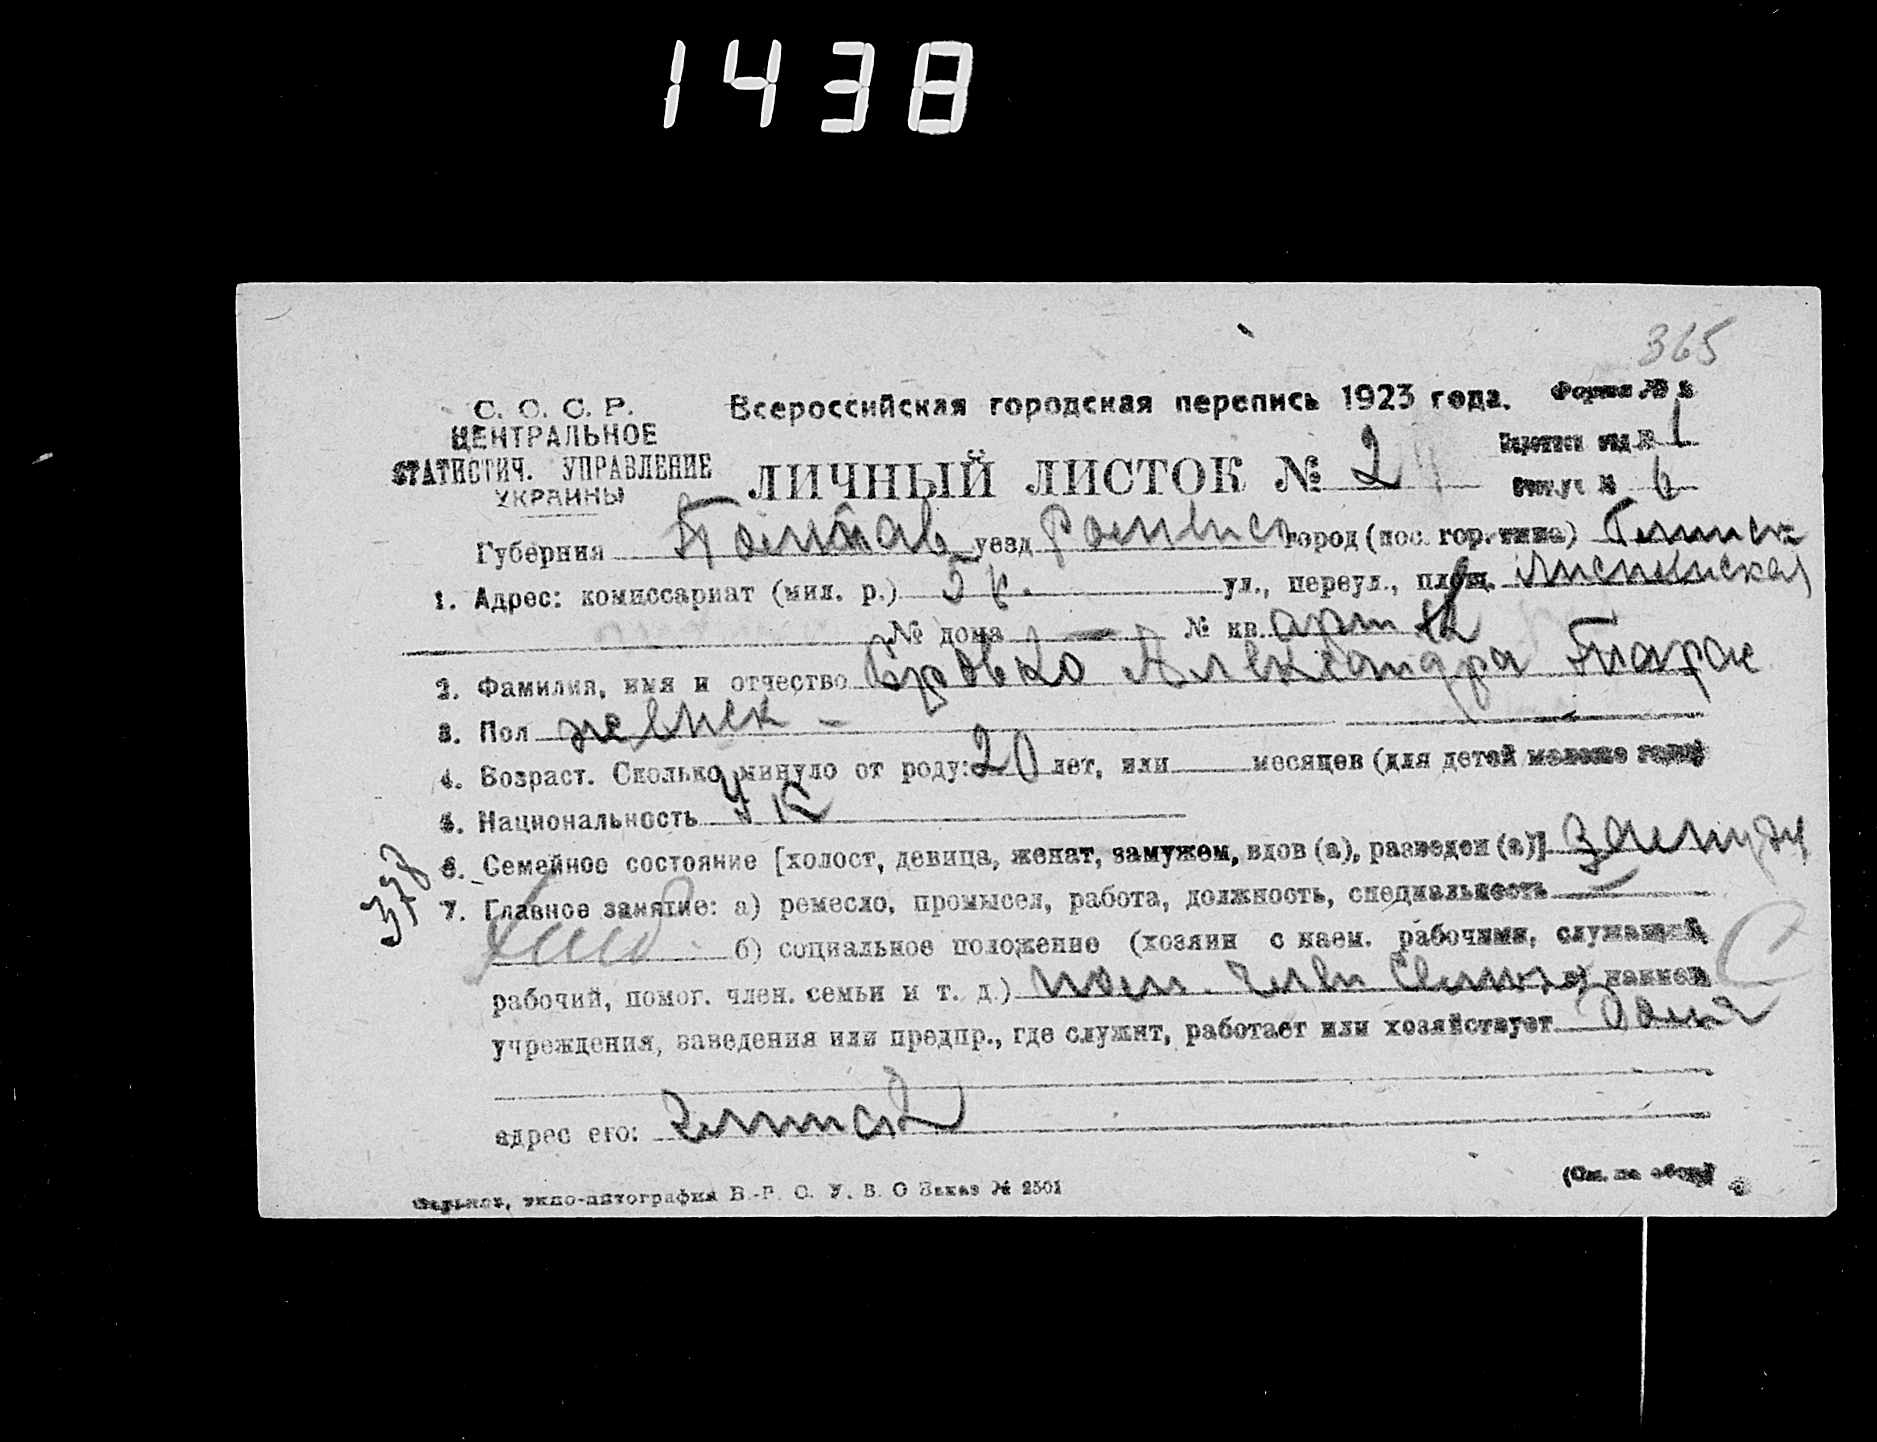 1438
365
С. С. С. Р.
ЦЕНТРАЛЬНОЕ
СТАТИСТИЧ. УПРАВЛЕНИЕ
УКРАИНЫ
Всероссийская городская перепись 1923 года.
Форма № 1
ЛИЧНЫЙ ЛИСТОК № 2
№ 1
№ 6
Губерния Полтав уезд город (пос. гор. типа)
1. Адрес: комиссариат (мил. р.) 5 р. ул., переул., площ.
№ дома — № кв.
2. Фамилия, имя и отчество Александра Тарас
3. Пол женск -
4. Возраст. Сколько минуло от роду: 20 лет, или месяцев (для детей моложе года)
5. Национальность Ук
378
6. Семейное состояние [холост, девица, женат, замужем, вдов (а), разведен (а)] замуж
7. Главное занятие: а) ремесло, промысел, работа, должность, специальность —
Ижд. б) социальное положение (хозяин с наем. рабочими, служащий,
рабочий, помог. член. семьи и т. д.) пом. член семьи в) наимен
С
учреждения, заведения или предпр., где служит, работает или хозяйствует
адрес его:
Харьков, типо-литография В.-Р. С. У. В. О Заказ № 2501
(См. на обор.)